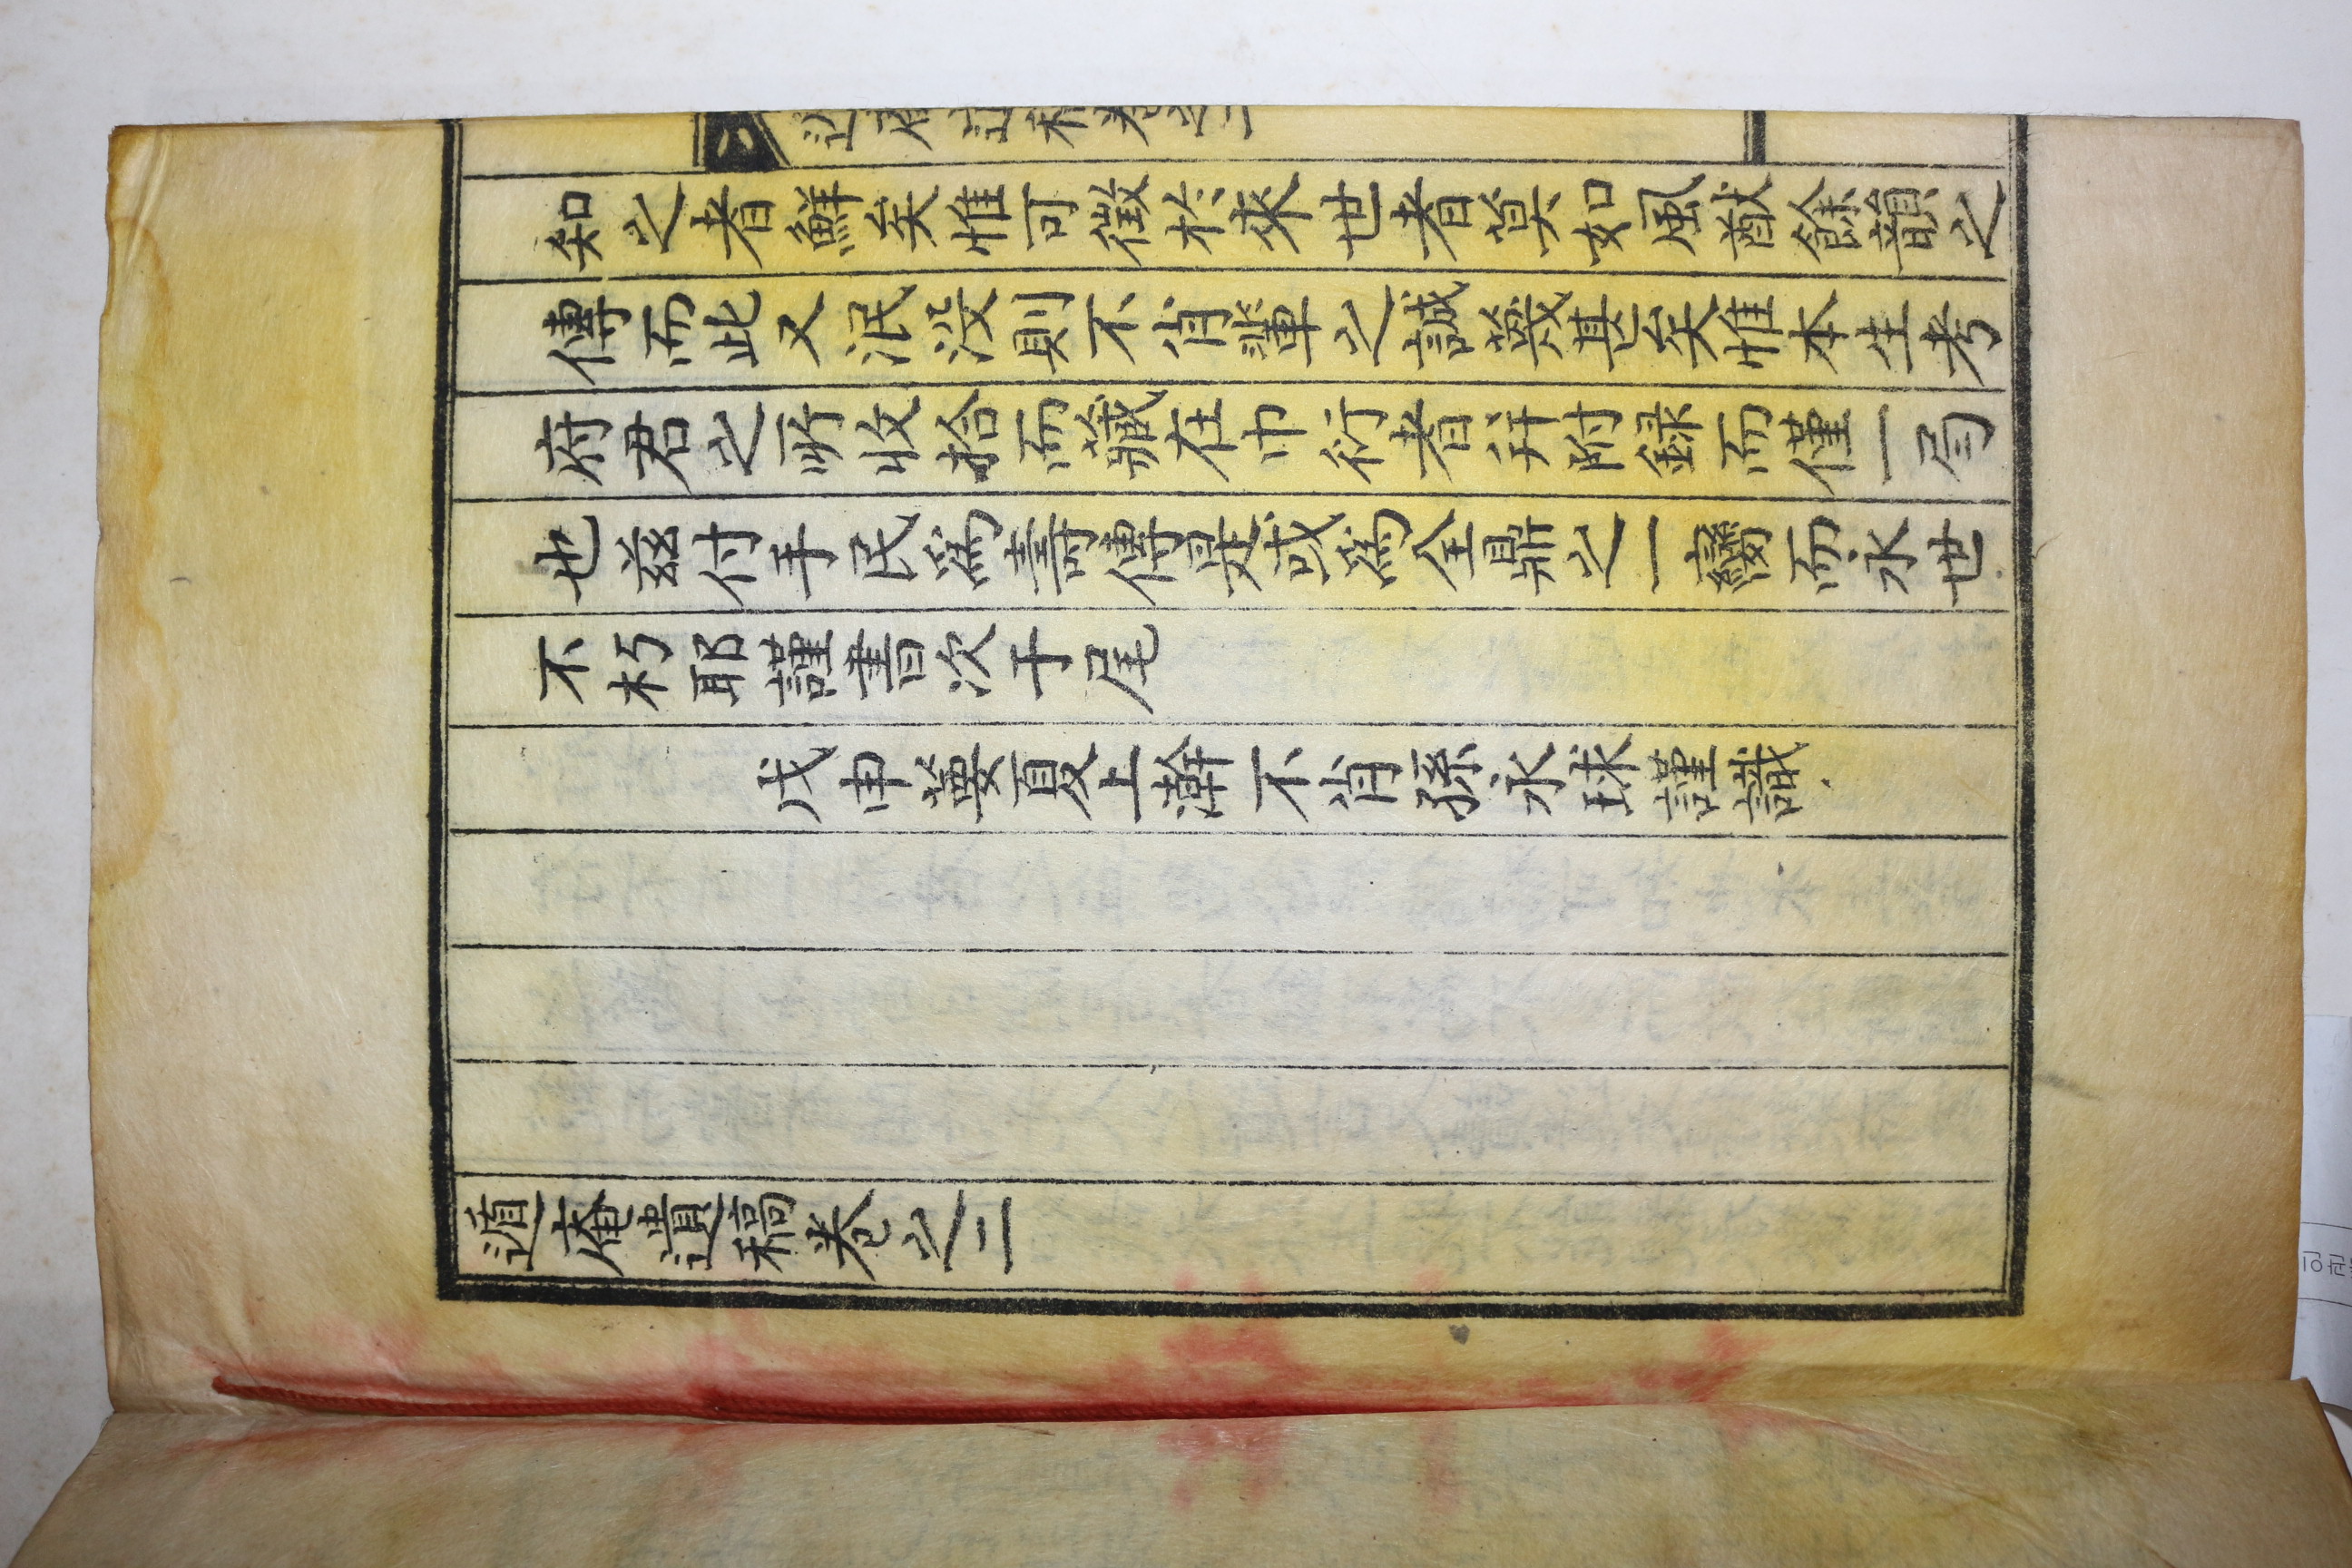 遁庵遺稿卷之二
知之者鮮矣惟可徵於來世者莫如風猷餘韻之
傳而此又泯没則不肖輩之誠蔑甚矣惟本生考
府君之所收拾而藏在巾衍者幷附録而僅一局
也玆付手民爲壽傳是或爲全鼎之一臠而永世
不朽耶謹書次于尾
戊申蔞夏上澣不肖孫永球謹識
遁庵遺稿卷之二
관인